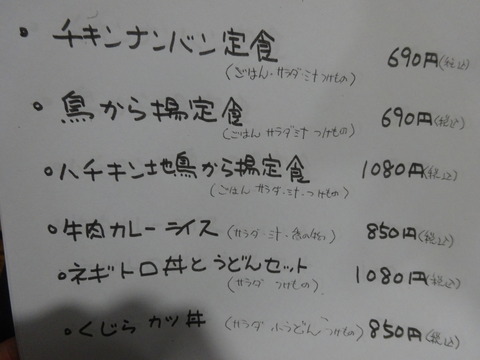 • チキンナンバン定食 690円(税込)
(ごはん・サラダ・汁 つけもの)
• 鳥から揚定食 690円(税込)
(ごはん サラダ 汁 つけもの)
• ハチキン地鳥から揚定食 1080円(税込)
(ごはん サラダ・汁・つけもの)
• 牛肉カレーライス (サラダ・汁・ 850円(税込)
• ネギトロ丼とうどんセット 1080円(税込)
(サラダ つけもの)
• くじらカツ丼 (サラダ 小うどん つけもの) 850円(税込)